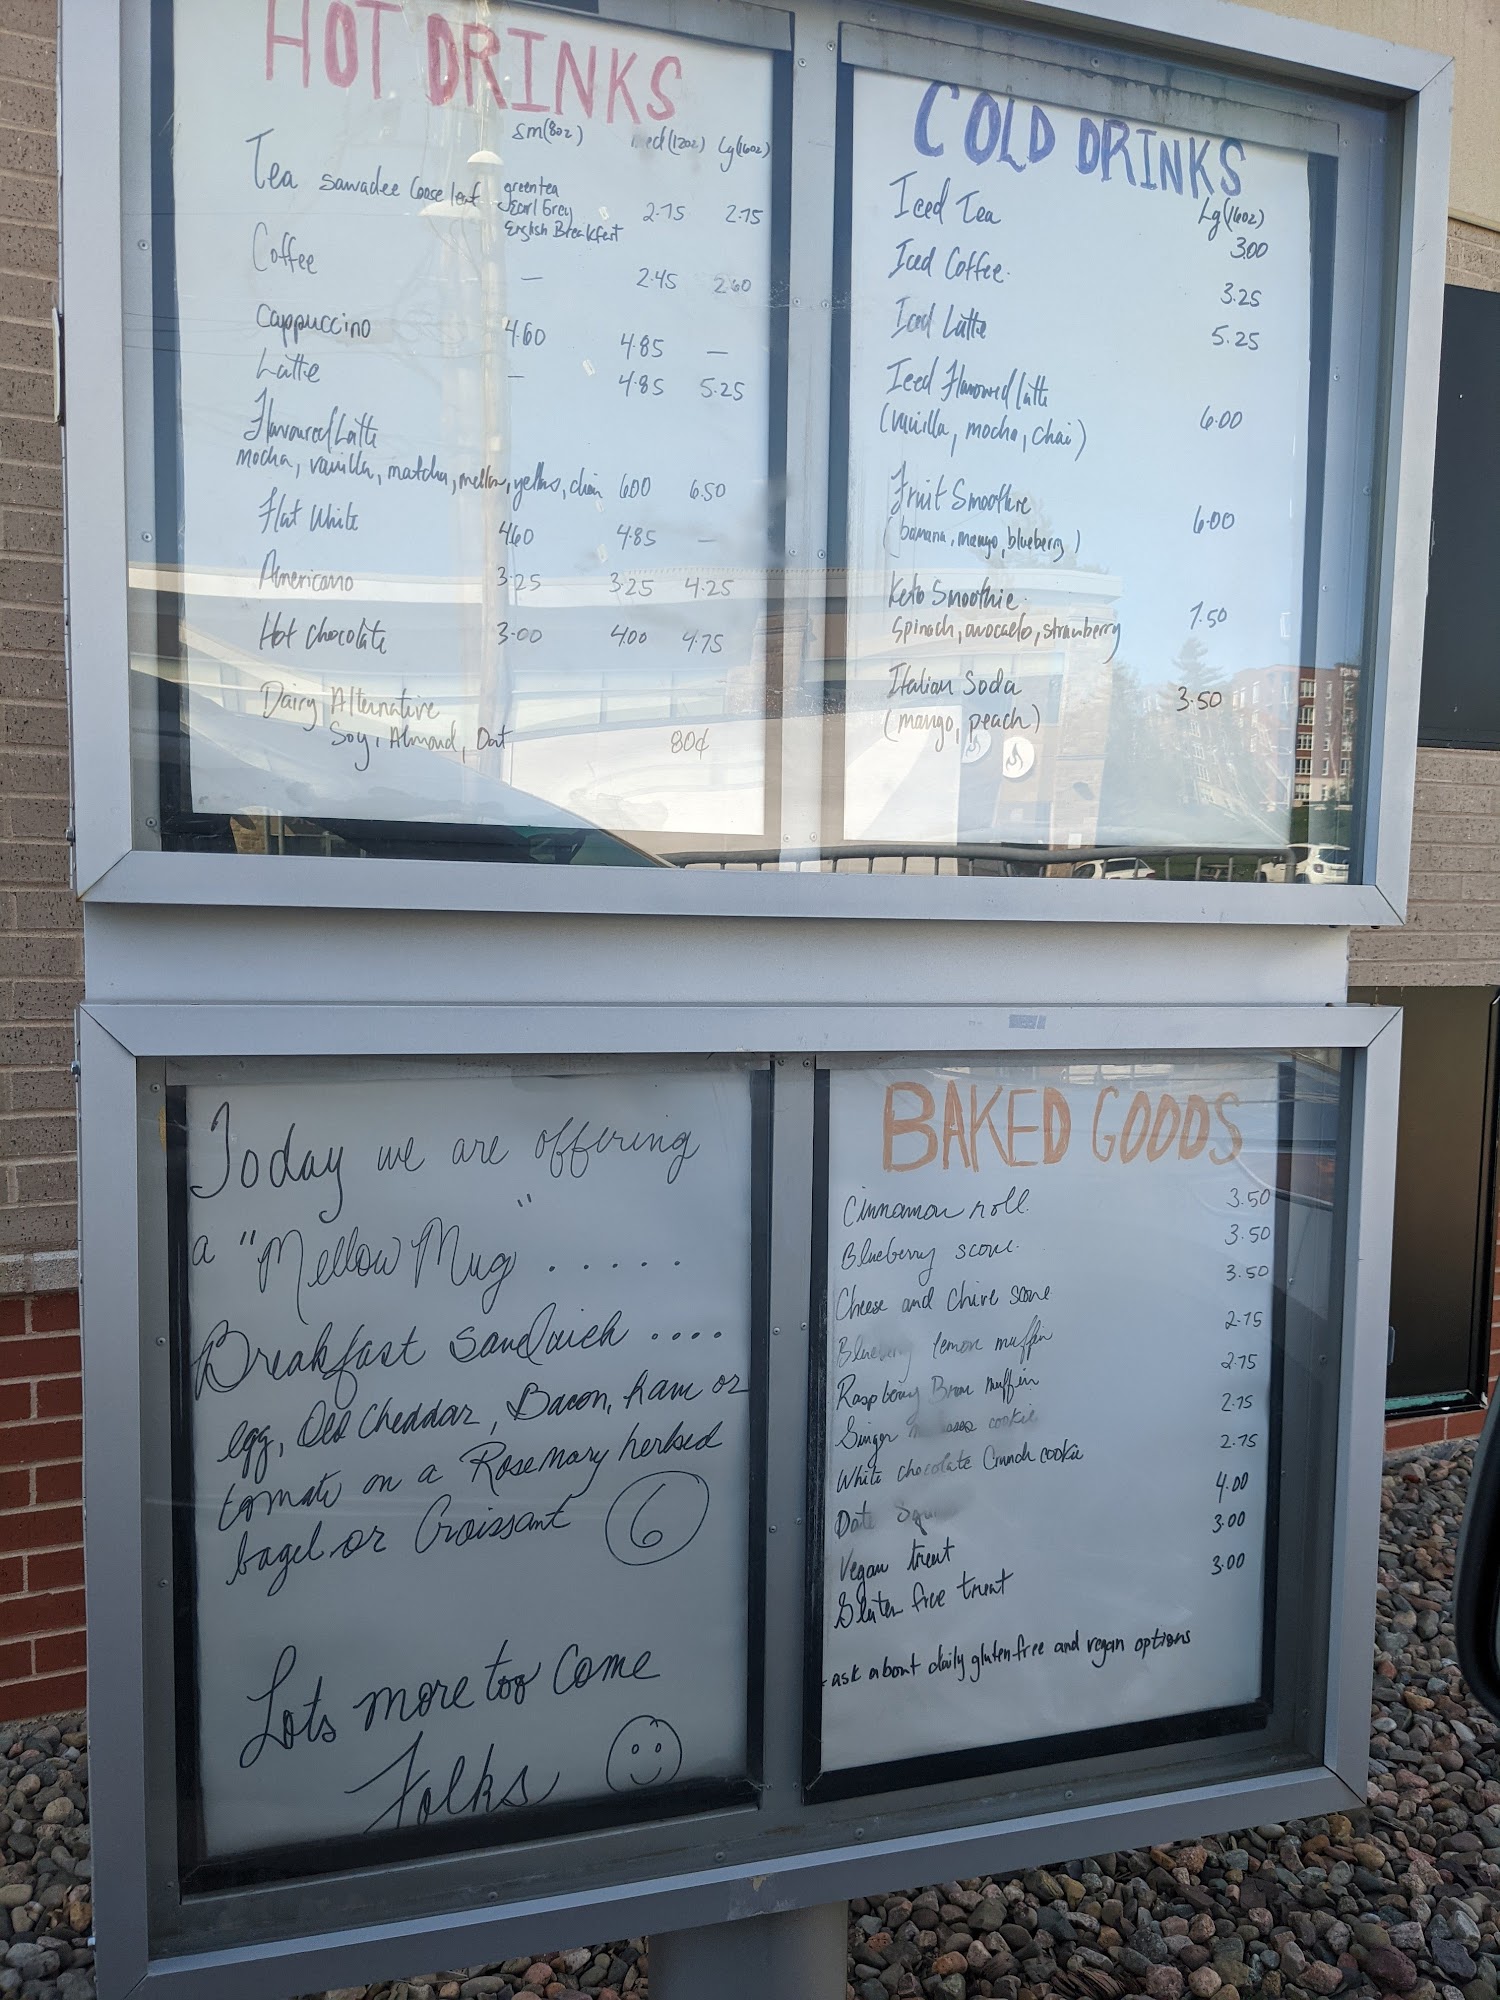 HOT DRINKS
sm(8oz) med(12oz) Lg(16oz)
Tea sawadee loose leaf green tea
Earl Grey 2.75 2.75
English Breakfast
Coffee — 2.45 2.60
Cappuccino 4.60 4.85 —
Latte — 4.85 5.25
Flavoured Latte
mocha, vanilla, matcha, mellow, yellow, chai 6.00 6.50
Flat White 4.60 4.85 —
Americano 3.25 3.25 4.25
Hot chocolate 3.00 4.00 4.75
Dairy Alternative
Soy, Almond, Oat 80¢
COLD DRINKS
Lg(16oz)
Iced Tea 3.00
Iced Coffee 3.25
Iced Latte 5.25
Iced Flavoured latte
(vanilla, mocha, chai) 6.00
Fruit Smoothie
(banana, mango, blueberry) 6.00
Keto Smoothie
Spinach, avocado, strawberry 7.50
Italian Soda
(mango, peach) 3.50
Today we are offering
a "Mellow Mug" . . . . .
Breakfast Sandwich . . . .
egg, Old Cheddar, Bacon, ham or
tomato on a Rosemary herbed
bagel or Croissant 6
Lots more too Come
Folks
BAKED GOODS
Cinnamon roll 3.50
Blueberry scone 3.50
Cheese and Chive scone 3.50
Blueberry lemon muffin 2.75
Raspberry Bran muffin 2.75
Ginger cookie 2.75
White chocolate Crunch cookie 2.75
Date 4.00
Vegan treat 3.00
Gluten free treat 3.00
- ask about daily gluten free and vegan options